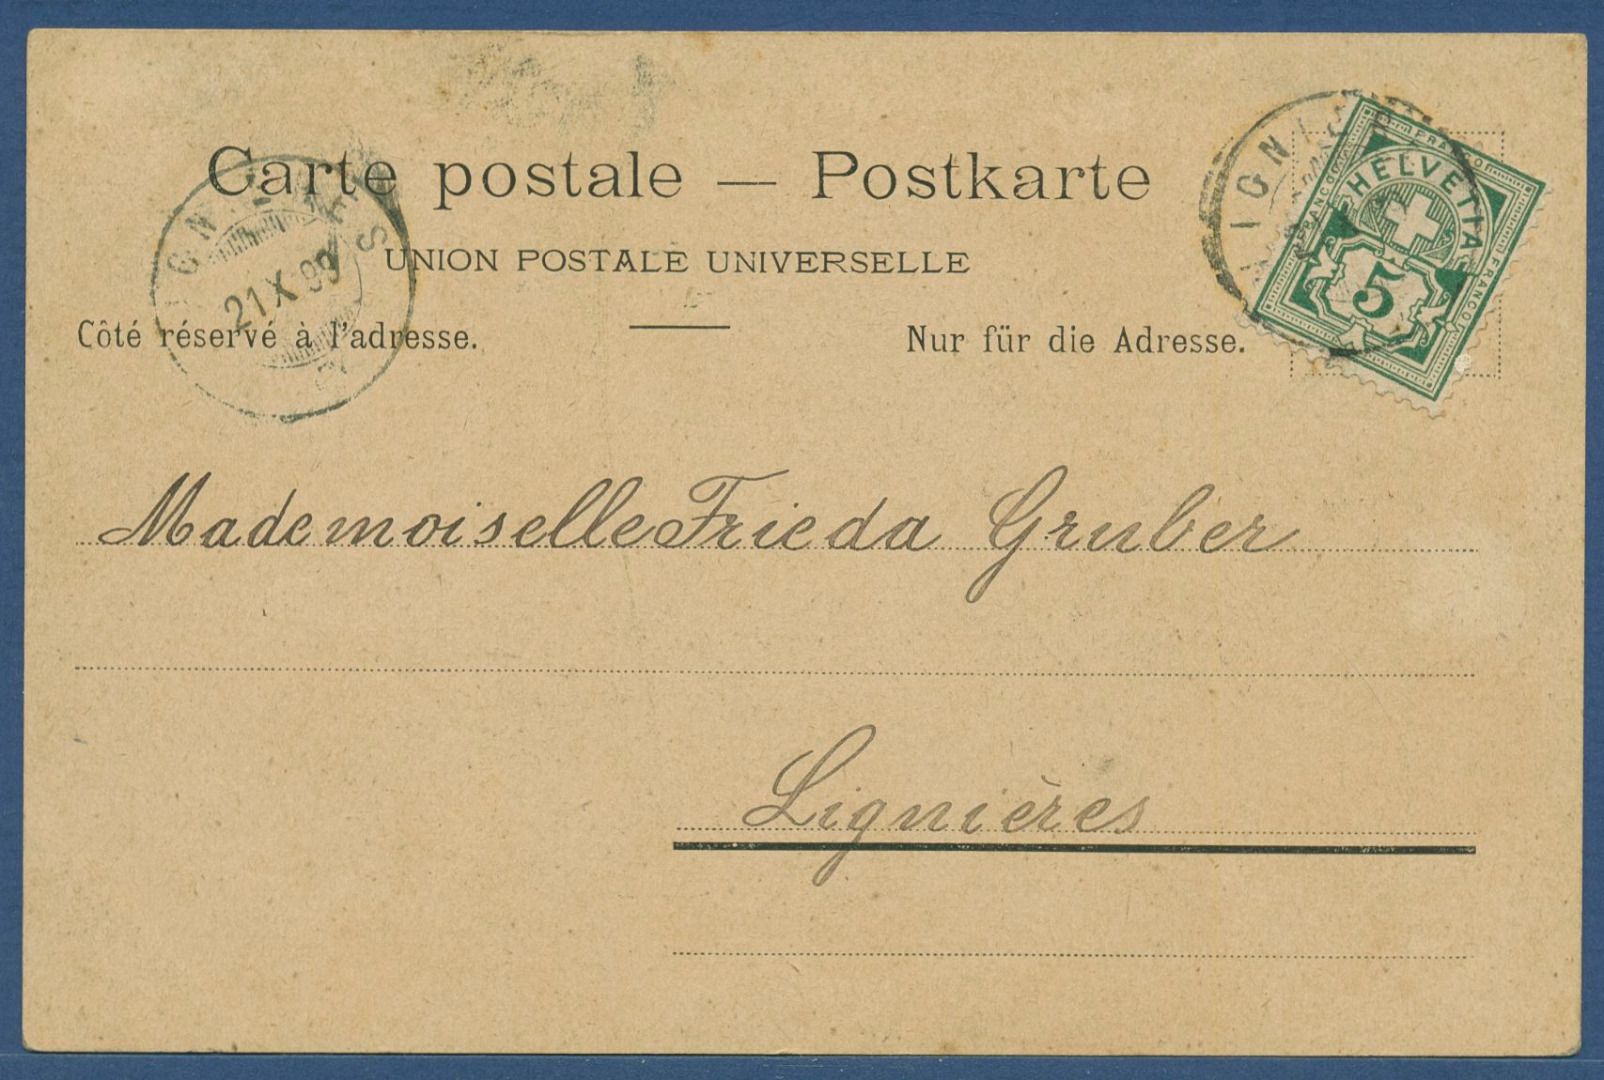 Carte postale — Postkarte
UNION POSTALE UNIVERSELLE
Côté réservé à l'adresse.
Nur für die Adresse.
21 X 99
HELVETIA
FRANCO
5
Mademoiselle Frieda Gruber
Lignières